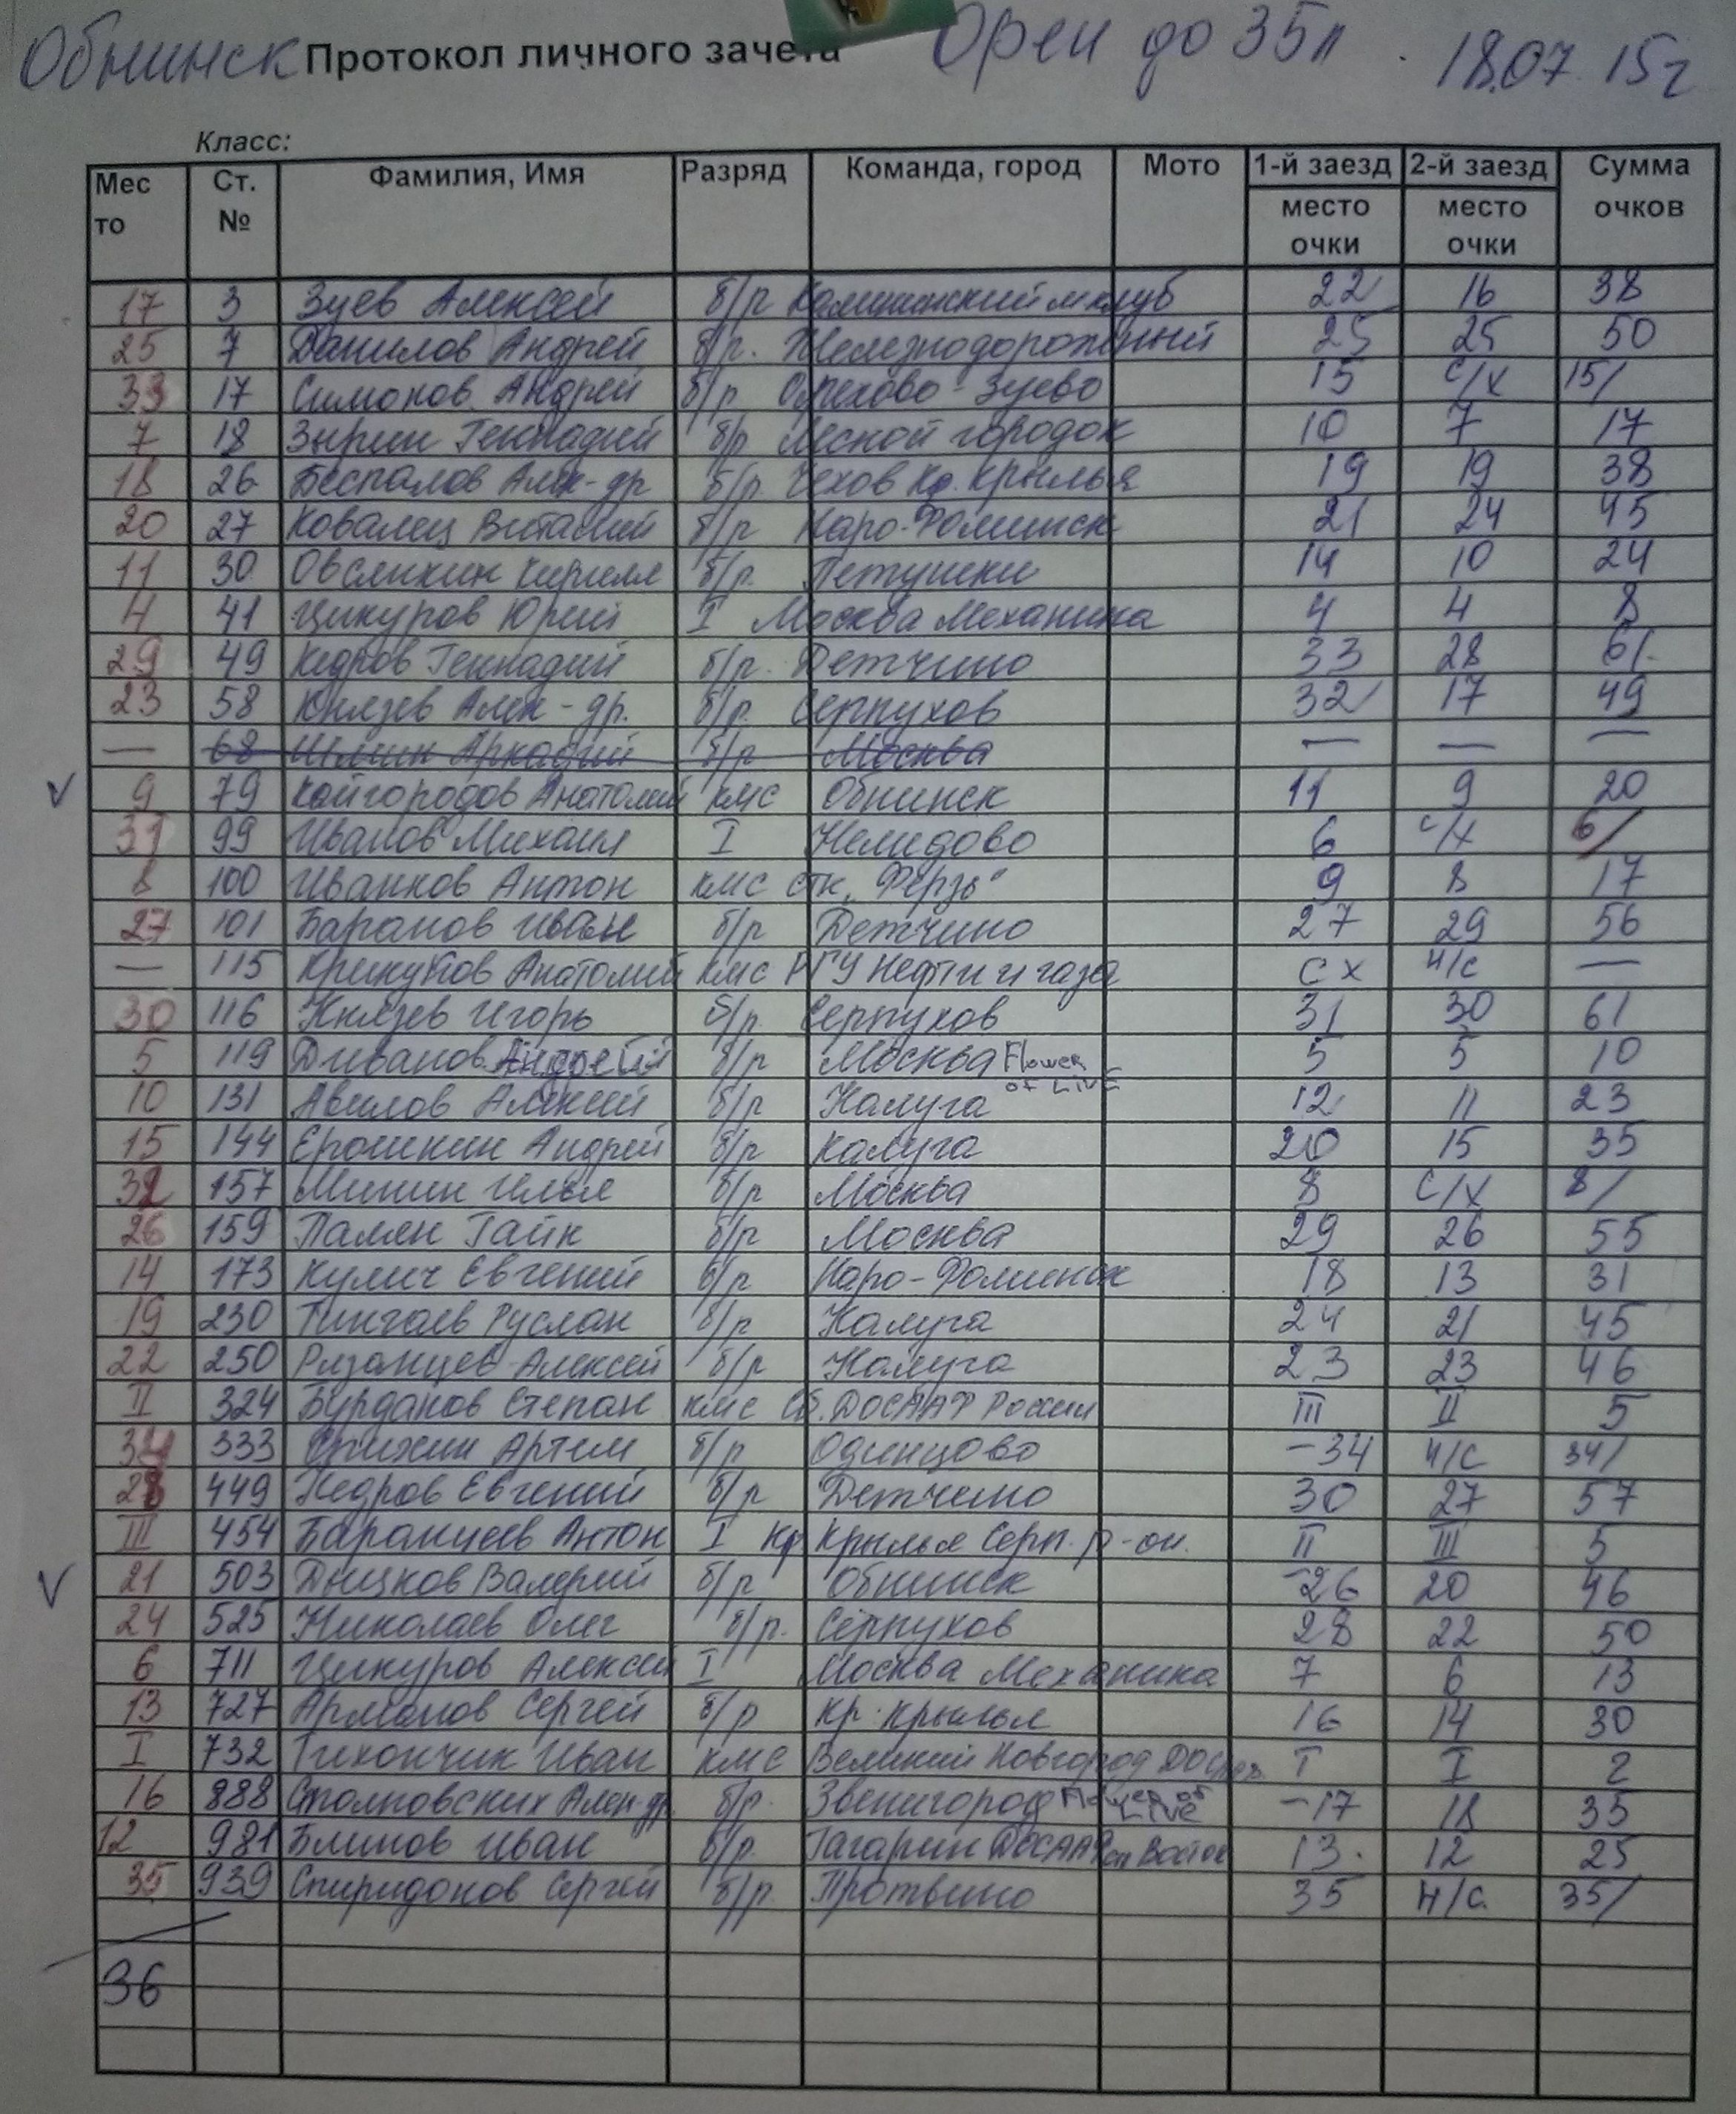 Обнинск Протокол личного зачета Open до 35л 18.07.15г
Класс:
Место Ст. № Фамилия, Имя Разряд Команда, город Мото 1-й заезд место очки 2-й заезд место очки Сумма очков
17 3 Зуев Алексей б/р м клуб 22 16 38
25 7 Данилов Андрей б/р. Железнодорожный 25 25 50
33 17 Симонов Андрей б/р Орехово-Зуево 15 с/х 15/
7 18 Зырин Геннадий б/р Лесной городок 10 7 17
18 26 Беспалов Алек-др б/р Чехов Кр. крылья 19 19 38
20 27 Ковалец Виталий б/р Наро-Фоминск 21 24 45
11 30 Овсянкин Кирилл б/р. Петушки 14 10 24
4 41 Цикуров Юрий I Москва Механика 4 4 8
29 49 Кедров Геннадий б/р. Детчино 33 28 61
23 58 Князев Алек-др. б/р. Серпухов 32 17 49
— 68 Аркадий б/р Москва — — —
V 9 79 Кайгородов Анатолий кмс Обнинск 11 9 20
31 99 Иванов Михаил I Нелидово 6 с/х 6/
8 100 Иванков Антон кмс стк „Ферзь" 9 8 17
27 101 Баранов Иван б/р Детчино 27 29 56
— 115 Анатолий кмс РГУ Нефти и газа с х н/с —
30 116 Князев Игорь б/р. Серпухов 31 30 61
5 119 Диванов Андрей б/р Москва Flower of Live 5 5 10
10 131 Авилов Алексей б/р Калуга 12 11 23
15 144 Ерошкин Андрей б/р Калуга 20 15 35
32 157 Минин Илья б/р Москва 8 с/х 8/
26 159 Гайк б/р Москва 29 26 55
14 173 Кулич Евгений б/р Наро-Фоминск 18 13 31
19 230 Руслан б/р Калуга 24 21 45
22 250 Рязанцев Алексей б/р Калуга 23 23 46
II 324 Бурданов Степан кмс Сб. ДОСААФ России III II 5
34 333 Артем б/р Одинцово -34 н/с 34/
28 449 Кедров Евгений б/р Детчино 30 27 57
III 454 Баранцев Антон I Кр. Крылья Серп. р-он. II III 5
V 21 503 Валерий б/р Обнинск -26 20 46
24 525 Николаев Олег б/р. Серпухов 28 22 50
6 711 Цикуров Алексей I Москва Механика 7 6 13
13 727 Сергей б/р Кр. Крылья 16 14 30
I 732 Тихончик Иван кмс Великий Новгород I I 2
16 888 Столповских Алек-др. б/р. Звенигород Flower of Live -17 18 35
12 981 Блинов Иван б/р. Гагарин ДОСААФ Восток 13. 12 25
35 939 Спиридонов Сергей б/р. Протвино 35 н/с. 35/
36